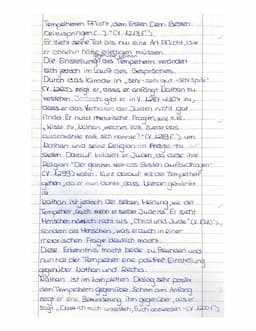 Tempelherren Pflicht, dem Ersten Dem Besten
beizuspringen (...)." (V. 1213 f.).
Er sieht seine Tat als nur eine Art Pflicht, die
er ohnehin hätte erledigen müssen.
Die Einstellung des Tempelherrn verändert
sich jedoch im Laufe des Gesprächs.
Durch das Klimax in „Sehr - sehr gut - sehr spitz"
zeigt er, dass er anfängt Nathan zu
verstehen. gibt er in V.
dass er das Verhalten der Juden nicht gut
findet. Er nutzt rhetorische Fragen, wie z.B.
„Wisst Ihr, Nathan, welches Volk Zuerst das
auserwählte Volk sich nannte?" um
Nathan und seine Religion in Frage zu
stellen. Darauf kritisiert er Juden, da diese ihre
Religion "Der ganzen Welt als Besten aufzudringen"
wollen. Kurz darauf will der Tempelherr
gehen, da er nun denkt, dass Nathan gekränkt
ist.
Nathan ist jedoch der selben Meinung, wie der
Tempelherr, auch wenn er selber Jude ist. Er sieht
Menschen nämlich nicht als „Christ und Jude"
sondern als Menschen, was er auch in einer
rhetorischen Frage deutlich macht.
Diese Erkenntnis macht beide zu Freunden und
nun hat der Tempelherr eine positive Einstellung
gegenüber Nathan und Recha.
Nathan ist im kompletten Dialog sehr positiv
dem Tempelherrn gegenüber. Schon am Anfang
zeigt er eine Bewunderung ihm gegenüber, als er
sagt „Dass ich mich weigerten, Euch